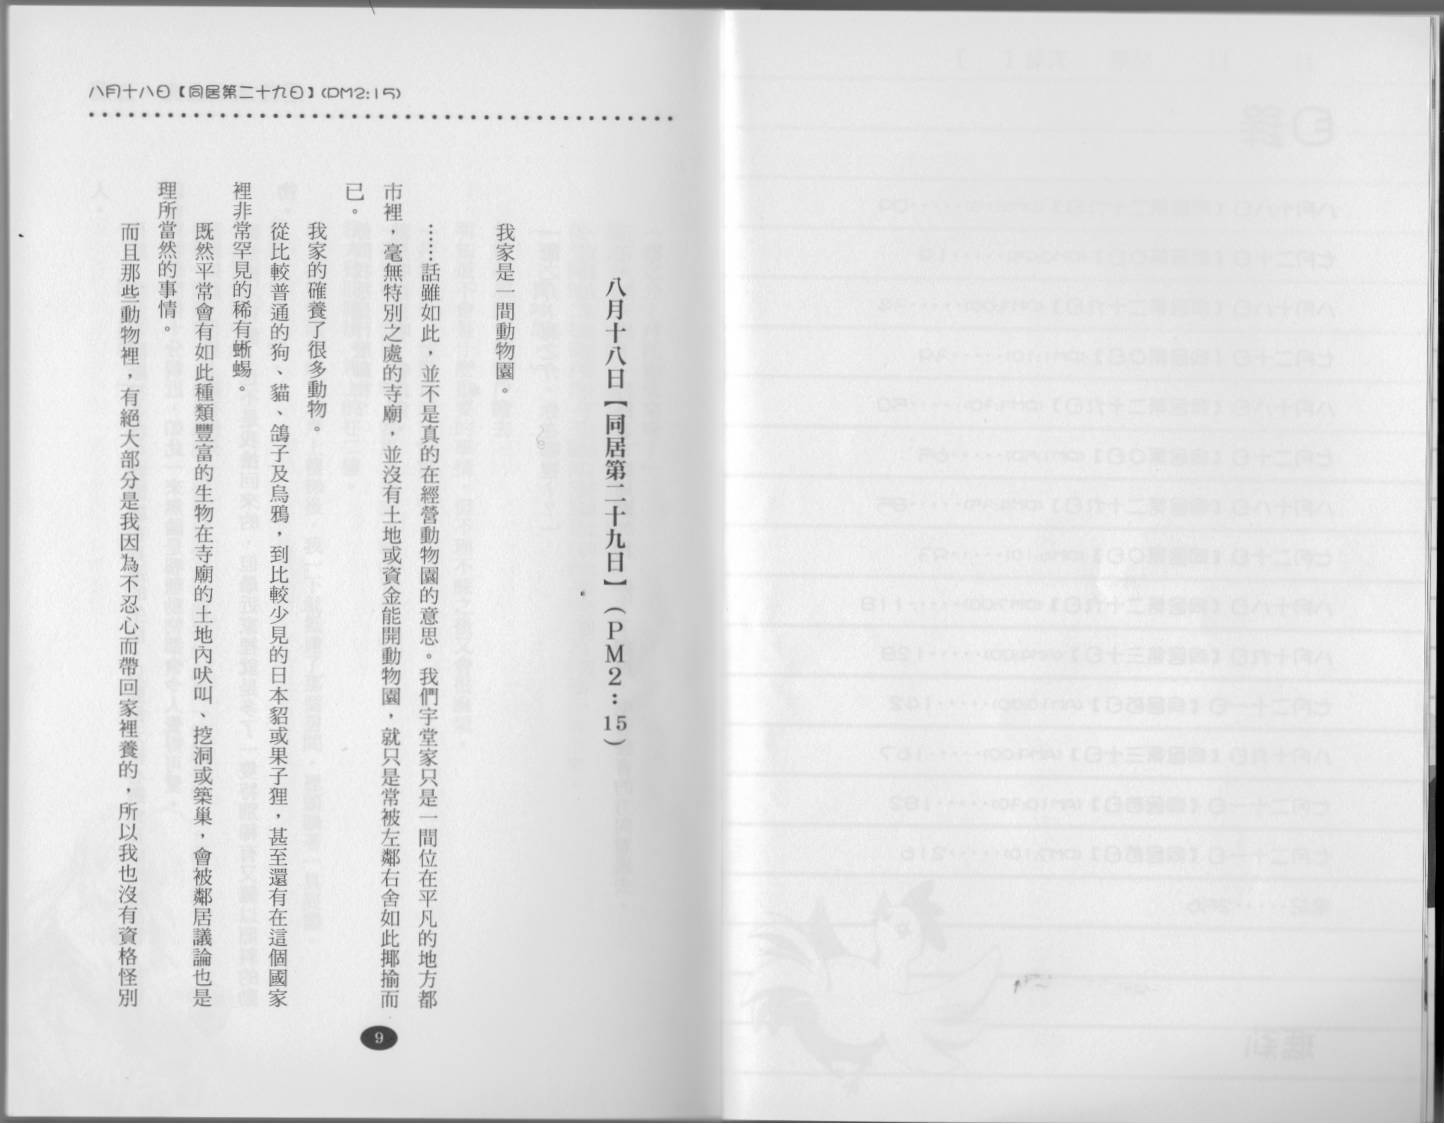 八月十八日【同居第二十九日】(PM2:15)
八月十八日【同居第二十九日】（PM2：15）
我家是一間動物園。
……話雖如此，並不是真的在經營動物園的意思。我們宇堂家只是一間位在平凡的地方都
市裡，毫無特別之處的寺廟，並沒有土地或資金能開動物園，就只是常被左鄰右舍如此揶揄而
已。
我家的確養了很多動物。
從比較普通的狗、貓、鴿子及烏鴉，到比較少見的日本貂或果子狸，甚至還有在這個國家
裡非常罕見的稀有蜥蜴。
既然平常會有如此種類豐富的生物在寺廟的土地內吠叫、挖洞或築巢，會被鄰居議論也是
理所當然的事情。
而且那些動物裡，有絕大部分是我因為不忍心而帶回家裡養的，所以我也沒有資格怪別
9